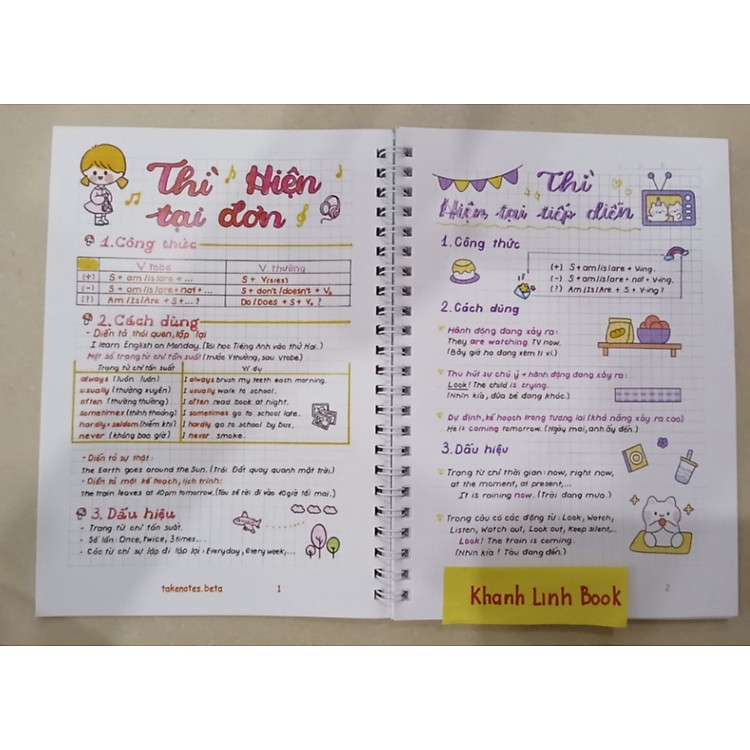 Thì Hiện
tại đơn
1. Công thức
V tobe V thường
(+) S + am/is/are + ... S + V(s/es)
(-) S + am/is/are + not + ... S + don't/doesn't + V₀
(?) Am/Is/Are + S + ...? Do/Does + S + V₀?
2. Cách dùng
- Diễn tả thói quen, lặp lại
I learn English on Monday. (Tôi học Tiếng Anh vào thứ Hai.)
Một số trạng từ chỉ tần suất (trước Vthường, sau Vtobe)
Trạng từ chỉ tần suất Ví dụ
always (luôn luôn) I always brush my teeth each morning.
usually (thường xuyên) I usually walk to school.
often (thường thường) I often read book at night.
sometimes (thỉnh thoảng) I sometimes go to school late.
hardly = seldom (hiếm khi) I hardly go to school by bus.
never (không bao giờ) I never smoke.
- Diễn tả sự thật:
The Earth goes around the Sun. (Trái Đất quay quanh mặt trời.)
- Diễn tả một kế hoạch, lịch trình:
The train leaves at 10pm tomorrow. (Tàu sẽ rời đi vào 10 giờ tối mai.)
3. Dấu hiệu
- Trạng từ chỉ tần suất.
- Số lần: Once, twice, 3 times...
- Các từ chỉ sự lặp đi lặp lại: Everyday, Every week,...
takenotes.beta 1
Thì
Hiện tại tiếp diễn
1. Công thức
(+) S + am/is/are + Ving.
(-) S + am/is/are + not + Ving.
(?) Am/Is/Are + S + V-ing?
2. Cách dùng
Hành động đang xảy ra:
They are watching TV now.
(Bây giờ họ đang xem ti vi.)
Thu hút sự chú ý + hành động đang xảy ra:
Look! The child is crying.
(Nhìn kìa, đứa bé đang khóc.)
Dự định, kế hoạch trong tương lai (khả năng xảy ra cao)
He is coming tomorrow. (Ngày mai, anh ấy đến.)
3. Dấu hiệu
Trạng từ chỉ thời gian: now, right now,
at the moment, at present,...
It is raining now. (Trời đang mưa.)
Trong câu có các động từ: Look, Watch,
Listen, Watch out, Look out, Keep silent,...
Look! The train is coming.
(Nhìn kìa! Tàu đang đến.)
Khanh Linh Book
2